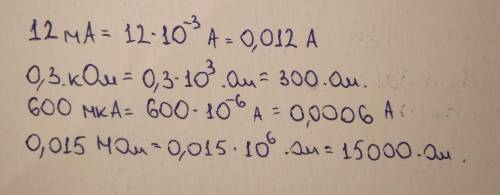 12 мА = 12·10⁻³ А = 0,012 А
0,3.кОм = 0,3·10³.Ом = 300.Ом.
600 мкА = 600·10⁻⁶ А = 0,0006 А.
0,015 МОм = 0,015·10⁶.Ом = 15000.Ом.